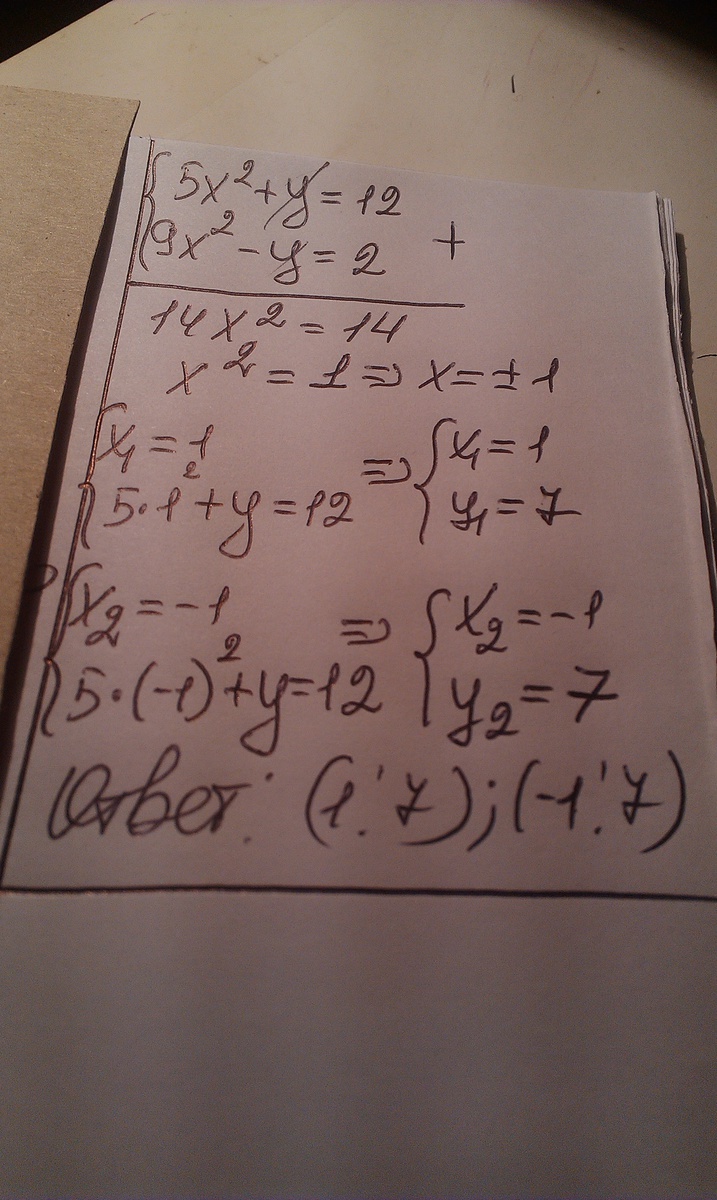 5x²+y=12
9x²-y=2 +
14x²=14
x²=1⇒x=±1
x₁=1 ⇒ x₁=1
5·1²+y=12 y₁=7
x₂=-1 ⇒ x₂=-1
5·(-1)²+y=12 y₂=7
Ответ: (1;7);(-1;7)